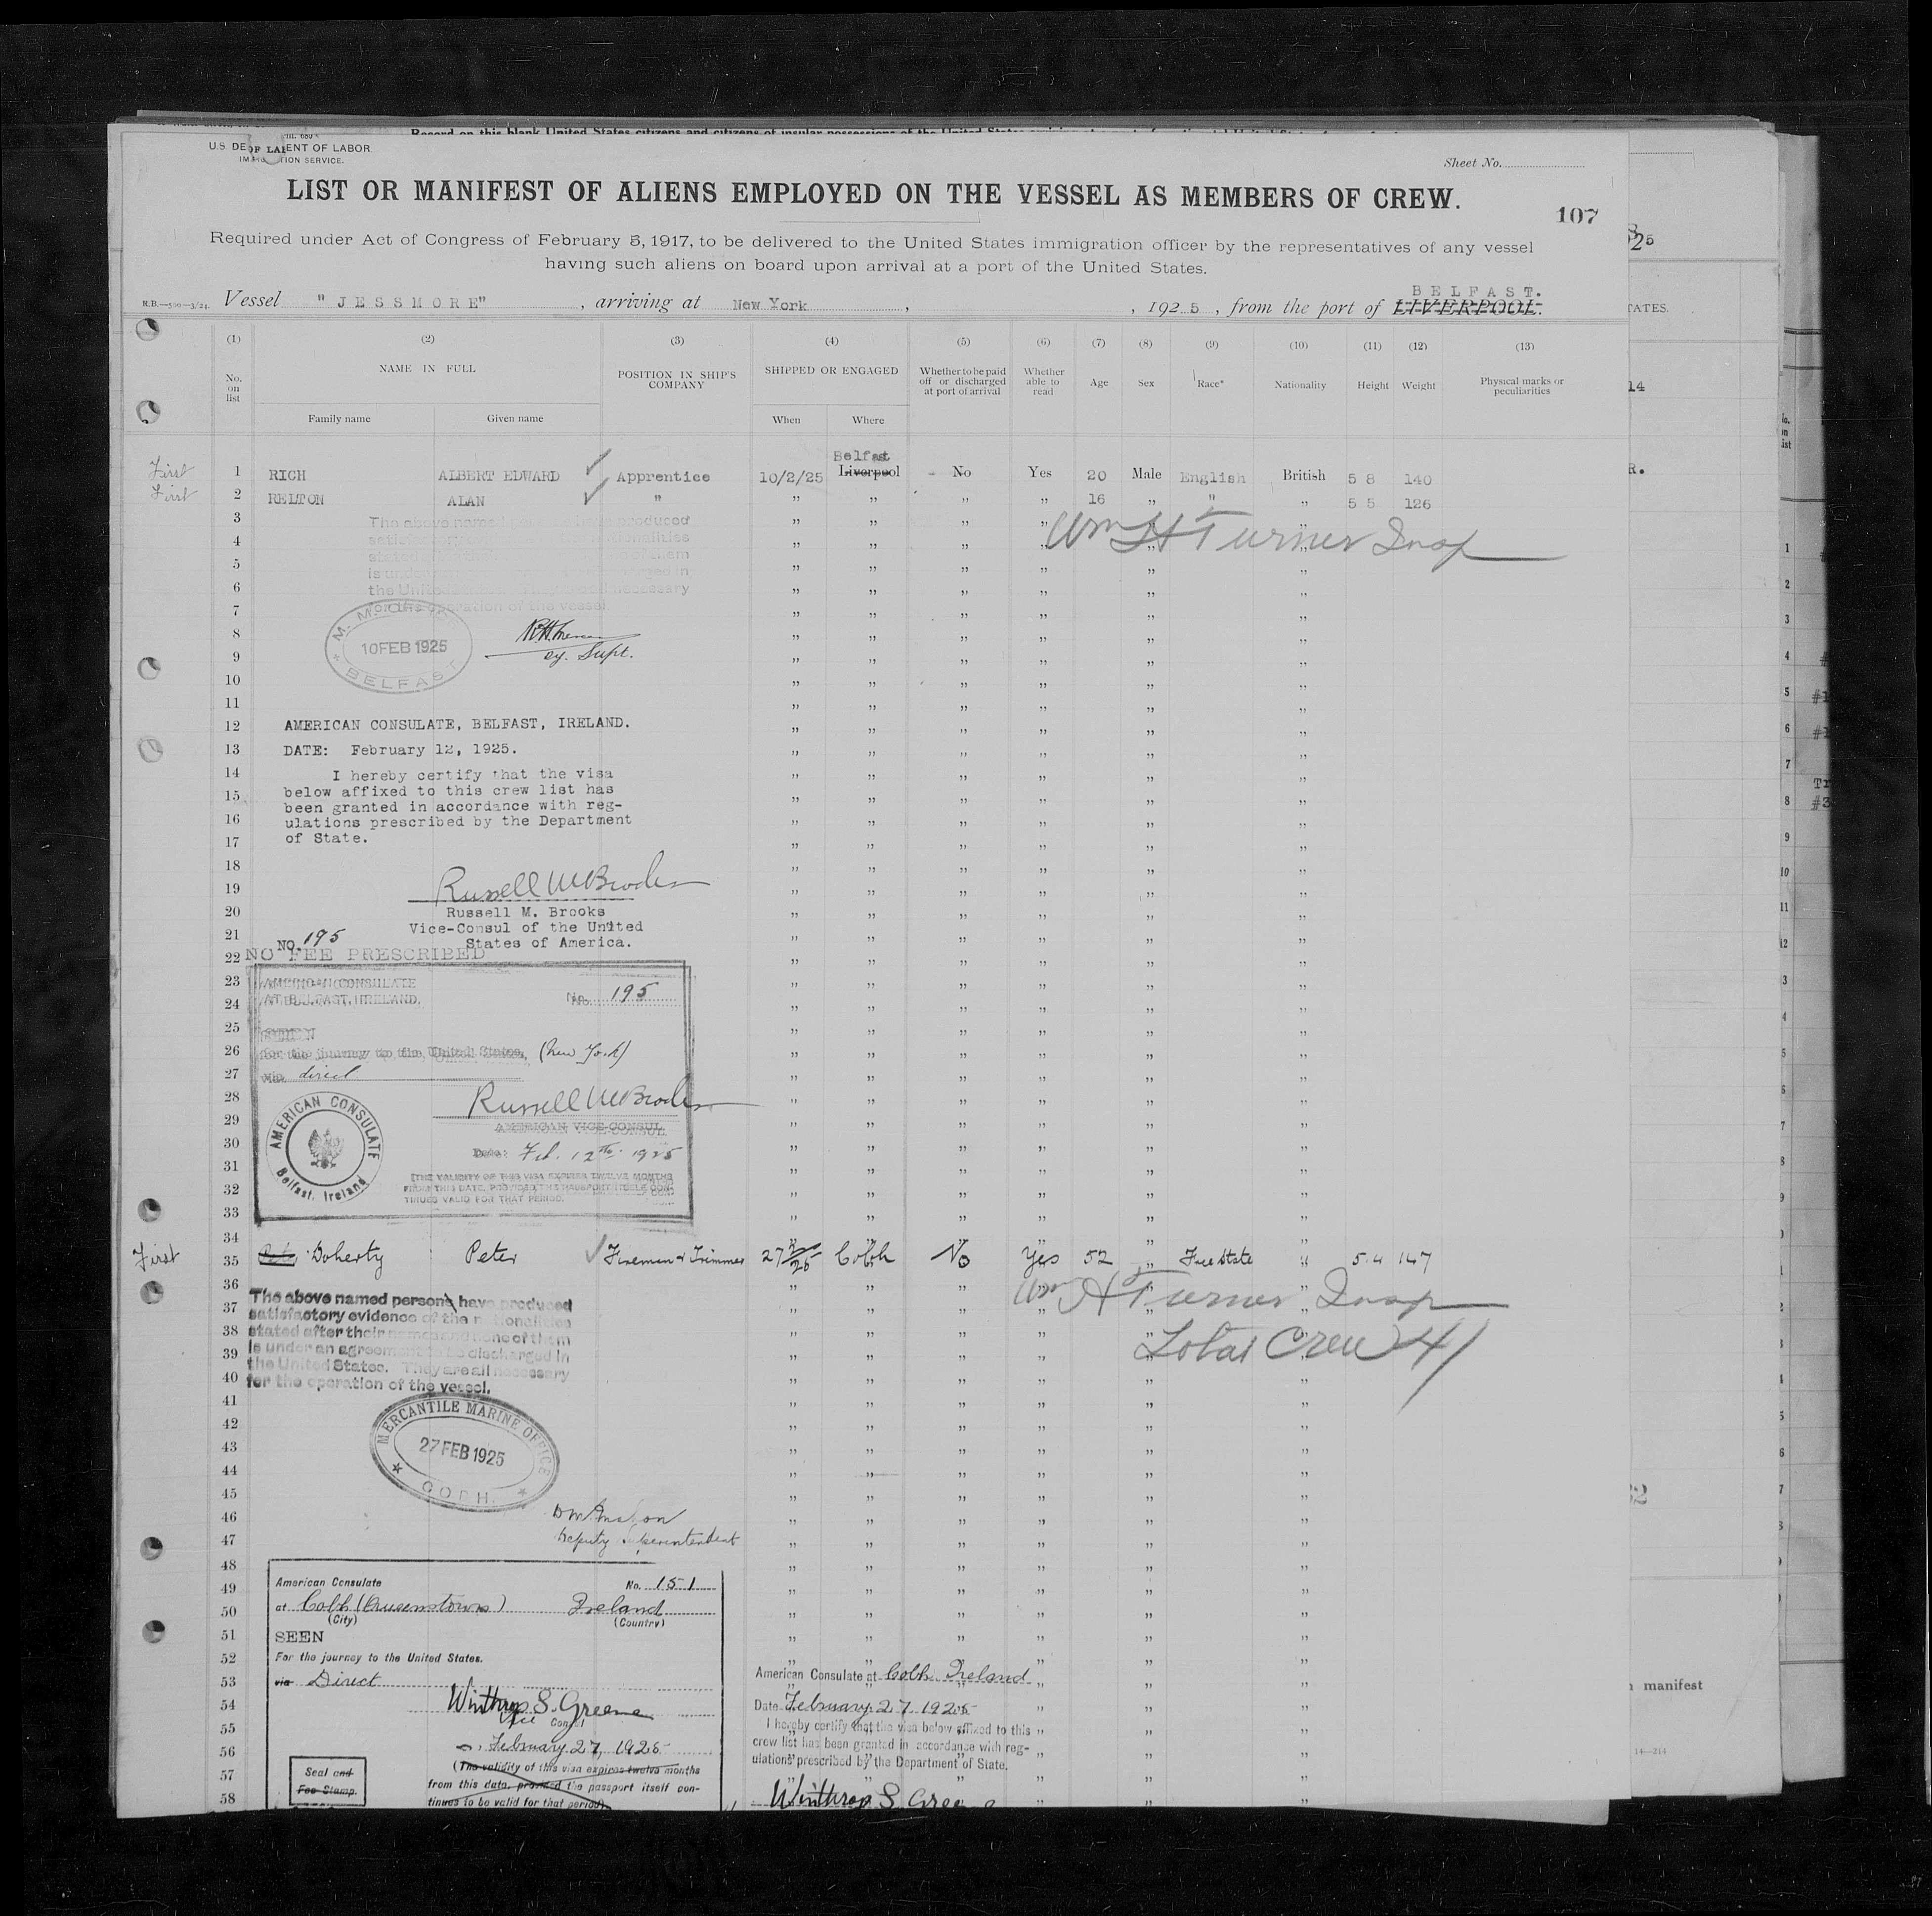 Record on this blank United States citizens and citizens of insular possessions of the United States
U.S. DE OF LA ENT OF LABOR
IMMIG TION SERVICE.
Sheet No.
LIST OR MANIFEST OF ALIENS EMPLOYED ON THE VESSEL AS MEMBERS OF CREW.
107
Required under Act of Congress of February 5, 1917, to be delivered to the United States immigration officer by the representatives of any vessel
having such aliens on board upon arrival at a port of the United States.
BELFAST.
R.B.—500—3/24. Vessel "JESSMORE", arriving at New York, , 1925, from the port of LIVERPOOL.
(1) (2) (3) (4) (5) (6) (7) (8) (9) (10) (11) (12) (13)
No. on list NAME IN FULL POSITION IN SHIP'S COMPANY SHIPPED OR ENGAGED Whether to be paid off or discharged at port of arrival Whether able to read Age Sex Race* Nationality Height Weight Physical marks or peculiarities
Family name Given name When Where
Belfast
First 1 RICH ALBERT EDWARD ✓ Apprentice 10/2/25 Liverpool - No Yes 20 Male English British 5 8 140
First 2 RELTON ALAN ✓ " " " " " 16 " " " 5 5 126
3 The above named have produced
4 satisfactory nationalities
Wm H Turner Insp
5 stated of them
6 is under discharged in
the United necessary
7 for the operation of the vessel
8 M. M. O.
9 10 FEB 1925
Dy. Supt.
10 BELFAST
11
12 AMERICAN CONSULATE, BELFAST, IRELAND.
13 DATE: February 12, 1925.
14 I hereby certify that the visa
15 below affixed to this crew list has
been granted in accordance with reg-
16 ulations prescribed by the Department
17 of State.
18
19 Russell M Brooks
20 Russell M. Brooks
21 Vice-Consul of the United
NO. 195 States of America.
22 NO FEE PRESCRIBED
23 AMERICAN CONSULATE
24 AT BELFAST, IRELAND. No. 195
25 SEEN
26 for the journey to the United States, (New York)
27 via direct
28 Russell M Brooks
29 AMERICAN VICE-CONSUL
30 Date: Feb. 12th 1925
AMERICAN CONSULATE
Belfast, Ireland
31 (THE VALIDITY OF THIS VISA EXPIRES TWELVE MONTHS
32 FROM THIS DATE, PROVIDED THE PASSPORT ITSELF CON-
TINUES VALID FOR THAT PERIOD.
33
34
First 35 Doherty Peter ✓ Fireman & Trimmer 27/2/25 Cobh No Yes 52 " Free State " 5.4 147
36
Wm H Turner Insp
37 The above named persons have produced
satisfactory evidence of the nationalities
38 stated after their names and none of them
Total Crew 41
39 is under an agreement to be discharged in
the United States. They are all necessary
40 for the operation of the vessel.
41 MERCANTILE MARINE OFFICE
42
43 27 FEB 1925
44
45 COBH.
46
47 Deputy Superintendent
48
49 American Consulate No. 151
50 at Cobh (Queenstown) Ireland
(City) (Country)
51 SEEN
52 For the journey to the United States.
53 via Direct
54 Winthrop S. Greene
55 Vice Consul
56 February 27, 1925
57 Seal and (The validity of this visa expires twelve months
Fee Stamp. from this date, provided the passport itself con-
58 tinues to be valid for that period)
American Consulate at Cobh Ireland
Date February 27 1925
I hereby certify that the visa below affixed to this
crew list has been granted in accordance with reg-
ulations prescribed by the Department of State.
Winthrop S. Greene
25
TATES.
14
R.
manifest
14—214